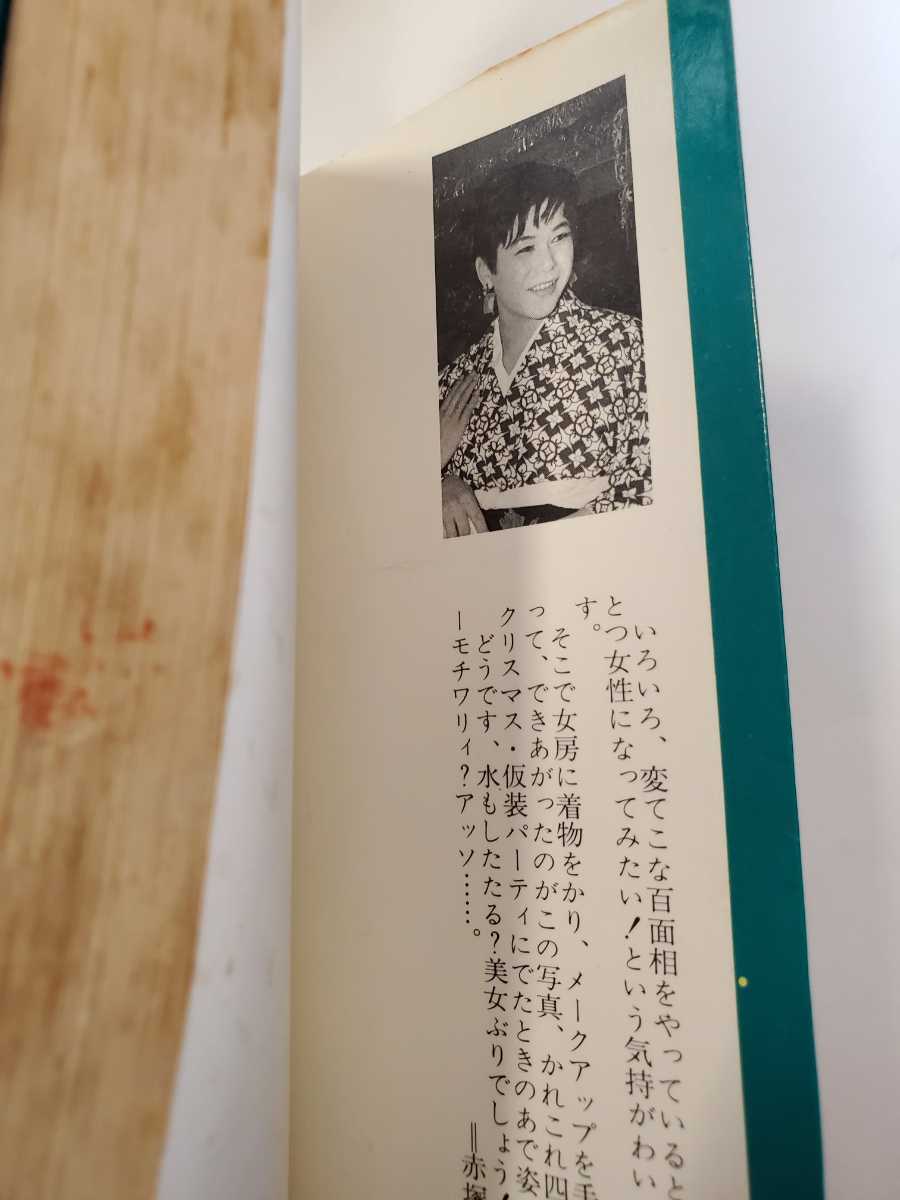 いろいろ、変てこな百面相をやっていると
とつ女性になってみたい！という気持がわい
す。
そこで女房に着物をかり、メークアップを手
って、できあがったのがこの写真、かれこれ四
クリスマス・仮装パーティにでたときのあで姿
どうです、水もしたたる？美女ぶりでしょう！
ーモチワリィ？アッソ……。
＝赤塚